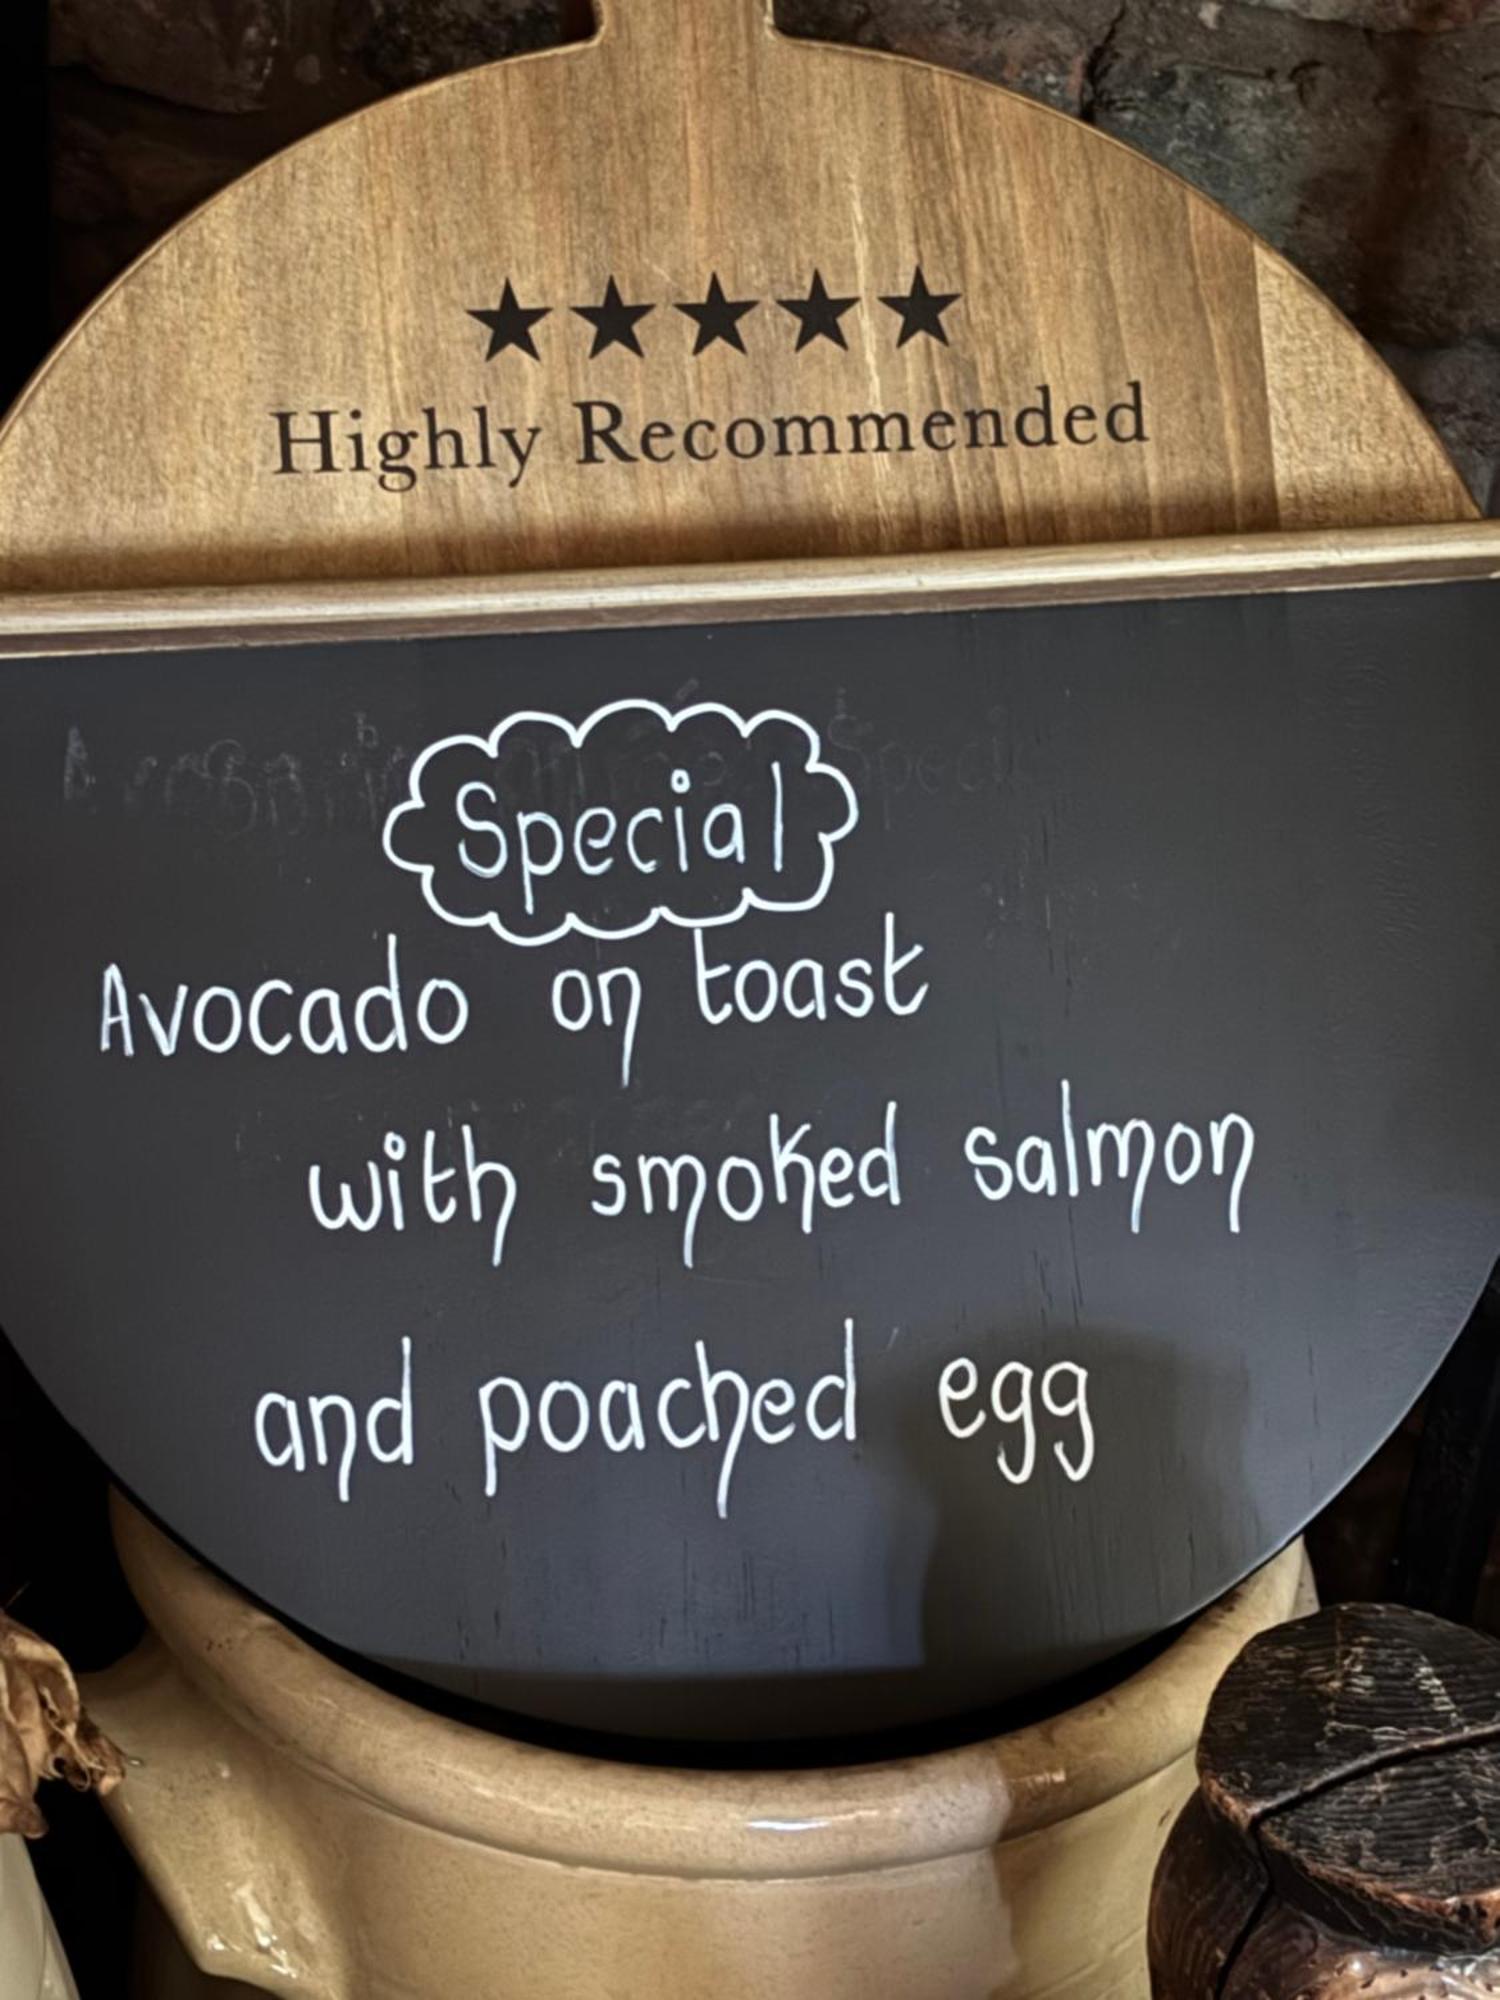 ★★★★★
Highly Recommended
Special
Avocado on toast
with smoked salmon
and poached egg